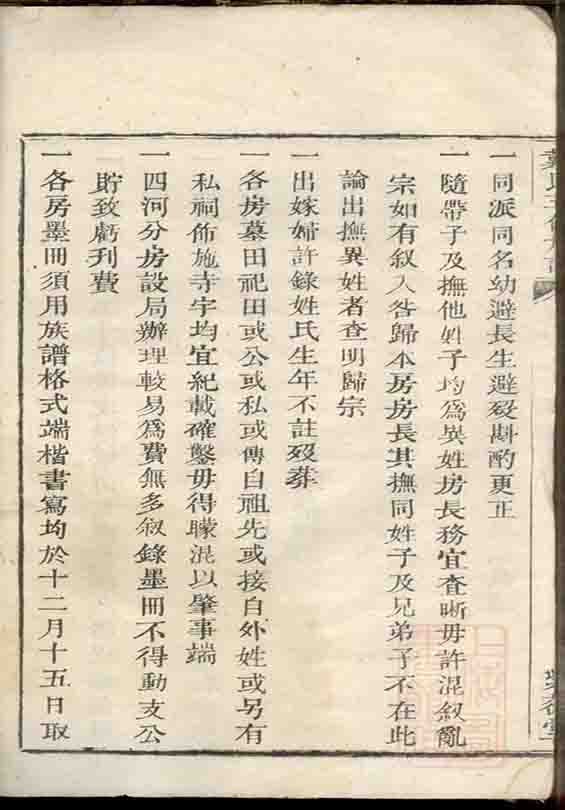 一同派同名幼避長生避歿斟酌更正
一隨帶子及撫他姓子均爲異姓房長務宜査晰毋許混叙亂
宗如有叙入咎歸本房房長其撫同姓子及兄弟子不在此
論出撫異姓者查明歸宗
一出嫁婦許錄姓氏生年不註歿葬
一各房墓田祀田或公或私或傳自祖先或接自外姓或另有
私祠佈施寺宇均宜紀載確鑿毋得矇混以肇事端
一四河分房設局辦理較易爲費無多叙錄墨冊不得動支公
貯致虧刊費
一各房墨冊須用族譜格式端楷書寫均於十二月十五日取